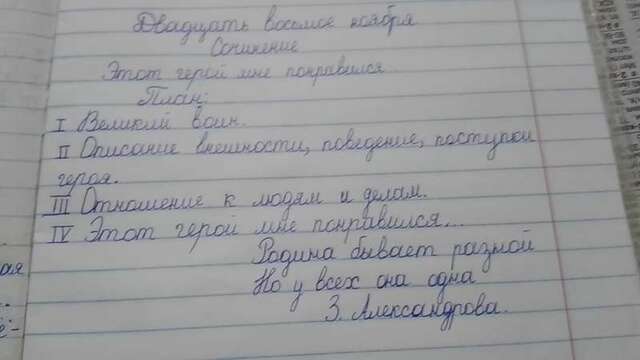 Двадцать восьмое ноября
Сочинение
Этот герой мне понравился.
План:
I Великий воин.
II Описание внешности, поведения, поступки
героя.
III Отношение к людям и делам.
IV Этот герой мне понравился...
Родина бывает разной
Но у всех она одна
З. Александрова.